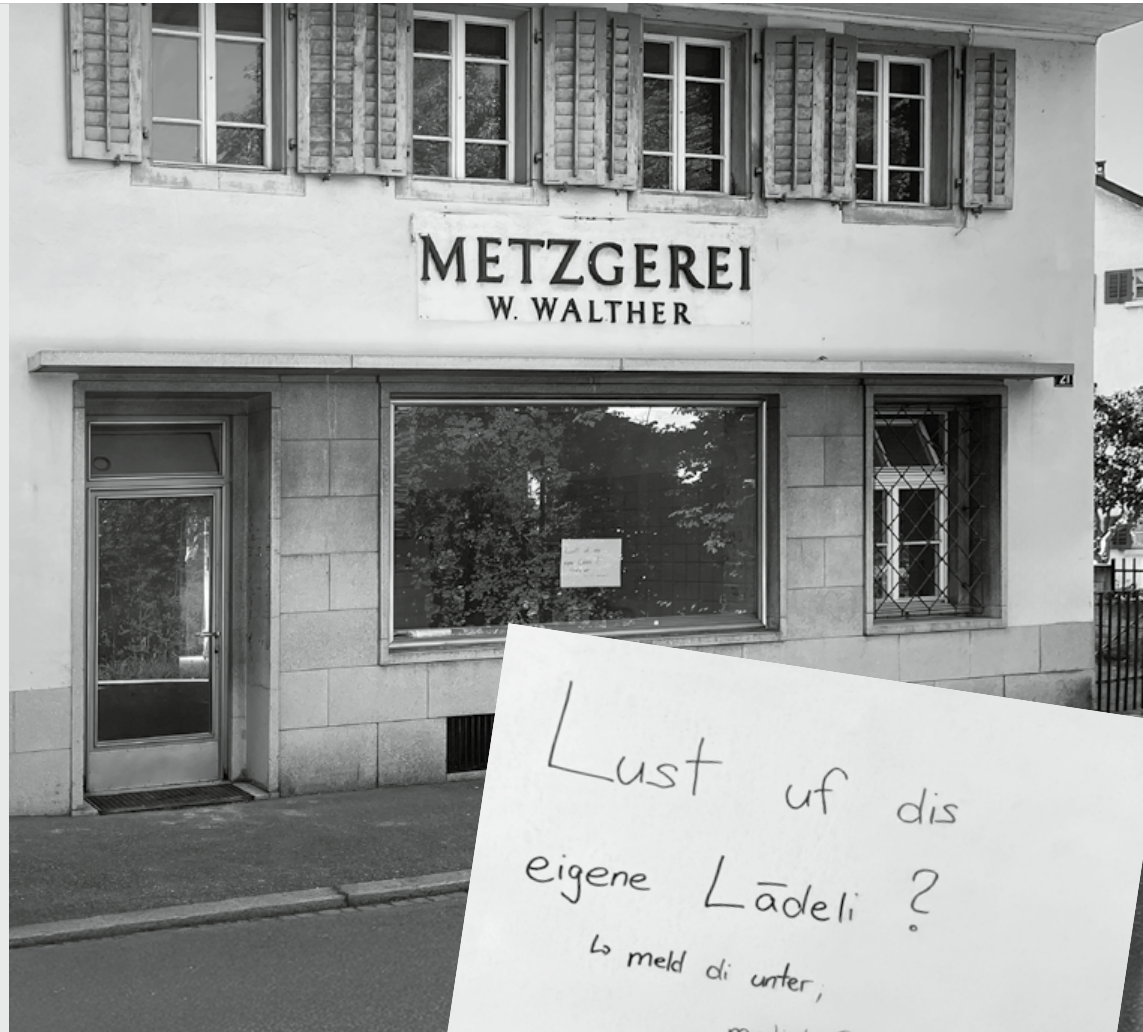 METZGEREI
W. WALTHER
21
Lust uf dis
eigene Lādeli ?
↳ meld di unter;